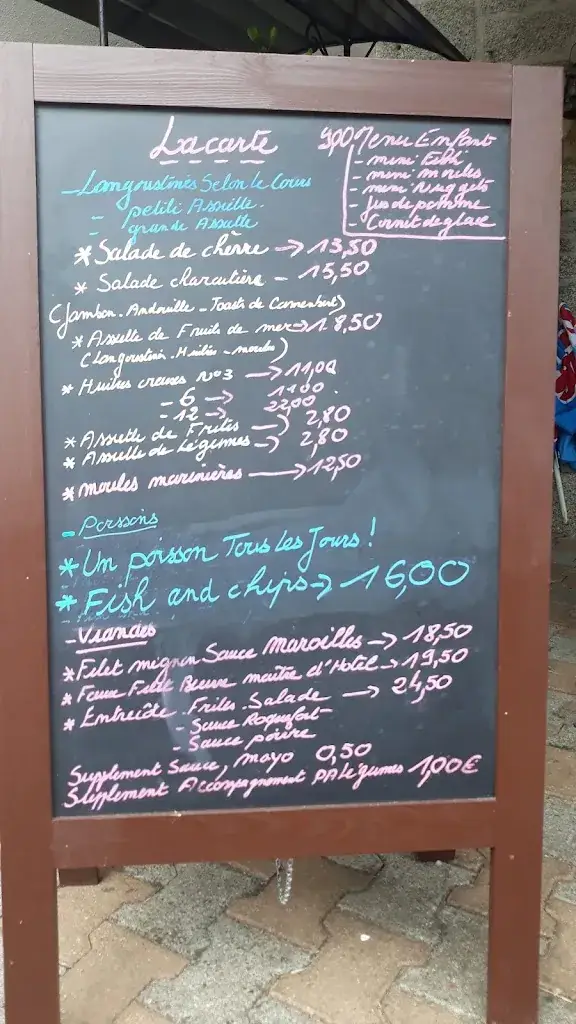 La carte
9,00 Menu Enfant
- mini Fish
- mini moules
- mini Nuggets
- Jus de pomme
- Cornet de glace
- Langoustines Selon le Cours
- petite Assiette.
- grande Assiette
* Salade de chèvre → 13,50
* Salade charcutière - 15,50
(Jambon. Andouille - Toasts de Camembert)
* Assiette de Fruits de mer → 18,50
(Langoustines. Huîtres - moules)
* Huîtres creuses N°3 → 11,00
- 6 → 11,00
- 12 → 22,00
* Assiette de Frites → 2,80
* Assiette de Légumes → 2,80
* moules marinières → 12,50
- Poissons
* Un poisson Tous Les Jours !
* Fish and chips → 16,00
- Viandes
* Filet mignon Sauce Maroilles → 18,50
* Faux Filet Beurre maître d'Hôtel → 19,50
* Entrecôte. Frites. Salade → 24,50
- Sauce Roquefort
- Sauce poivre
Supplement Sauce, mayo 0,50
Supplement Accompagnement légumes 1,00€